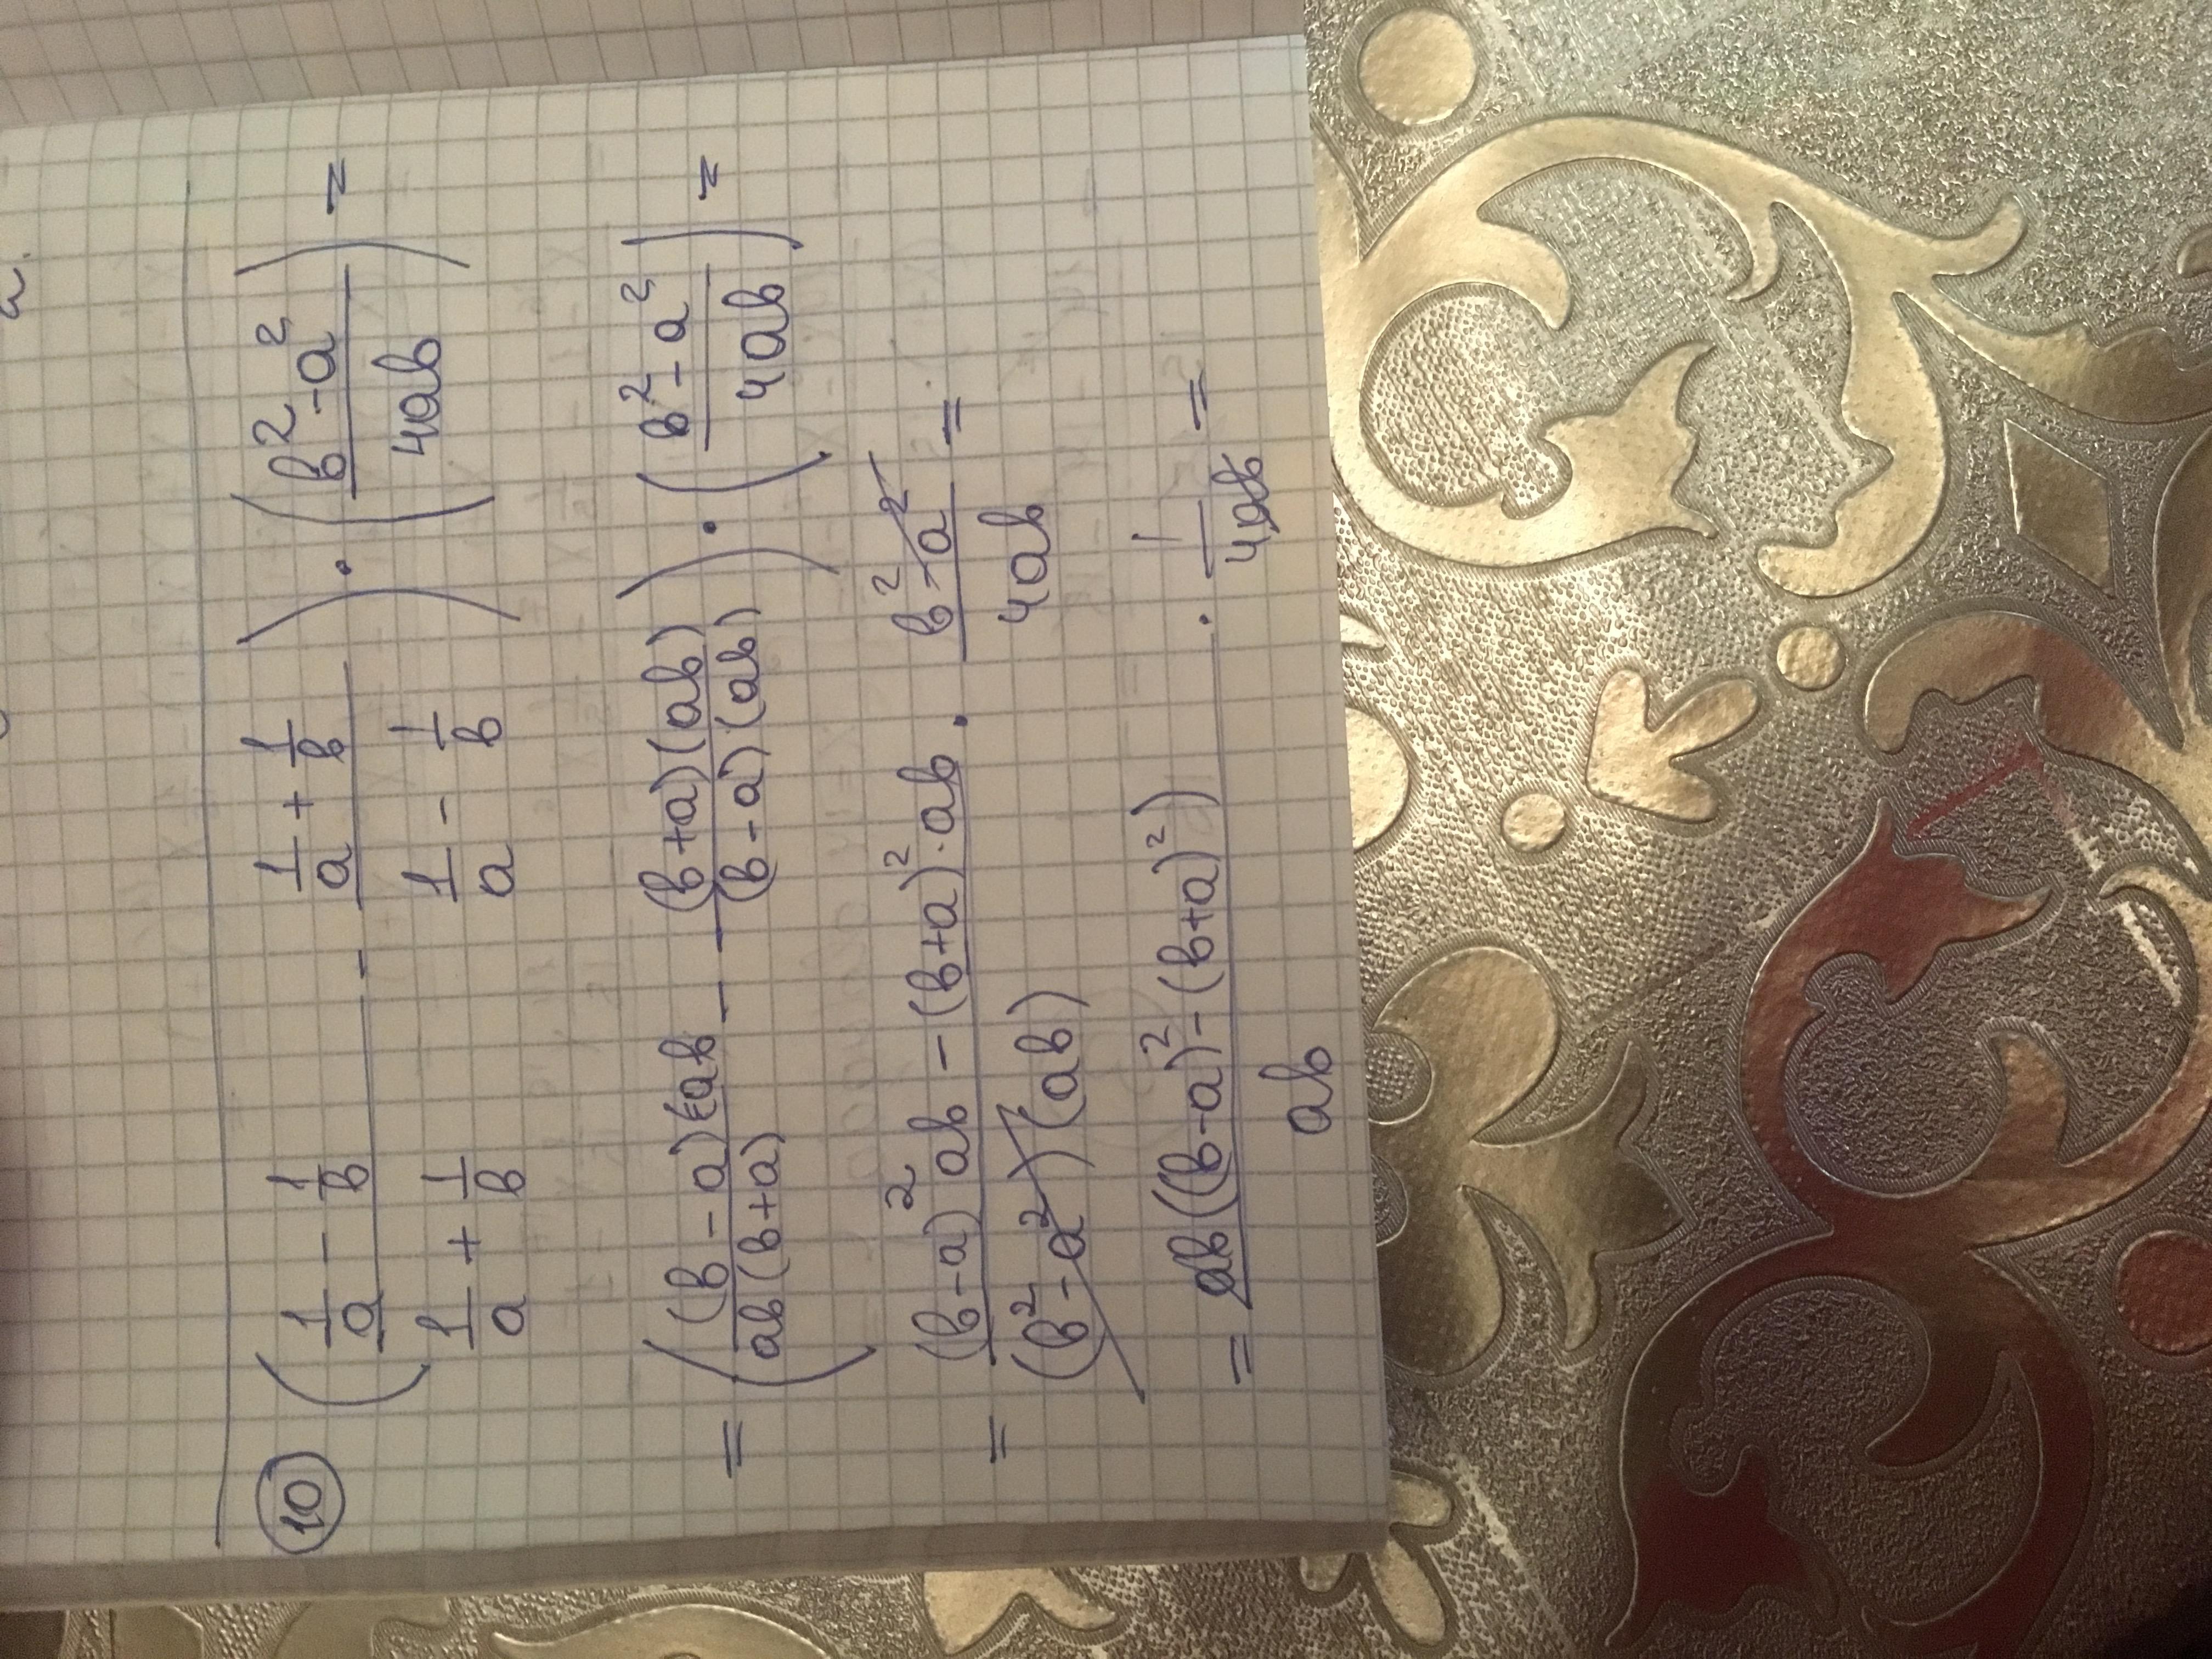 (10) ((1/a - 1/b)/(1/a + 1/b) - (1/a + 1/b)/(1/a - 1/b)) · ((b² - a²)/(4ab)) =
= (((b - a)(ab)/(ab(b+a)) - ((b+a)(ab))/((b-a)(ab))) · ((b² - a²)/(4ab)) =
= ((b-a)² ab - (b+a)² · ab)/((b² - a²)(ab)) · (b² - a²)/(4ab) =
= (ab((b-a)² - (b+a)²))/(ab) · 1/(4ab) =